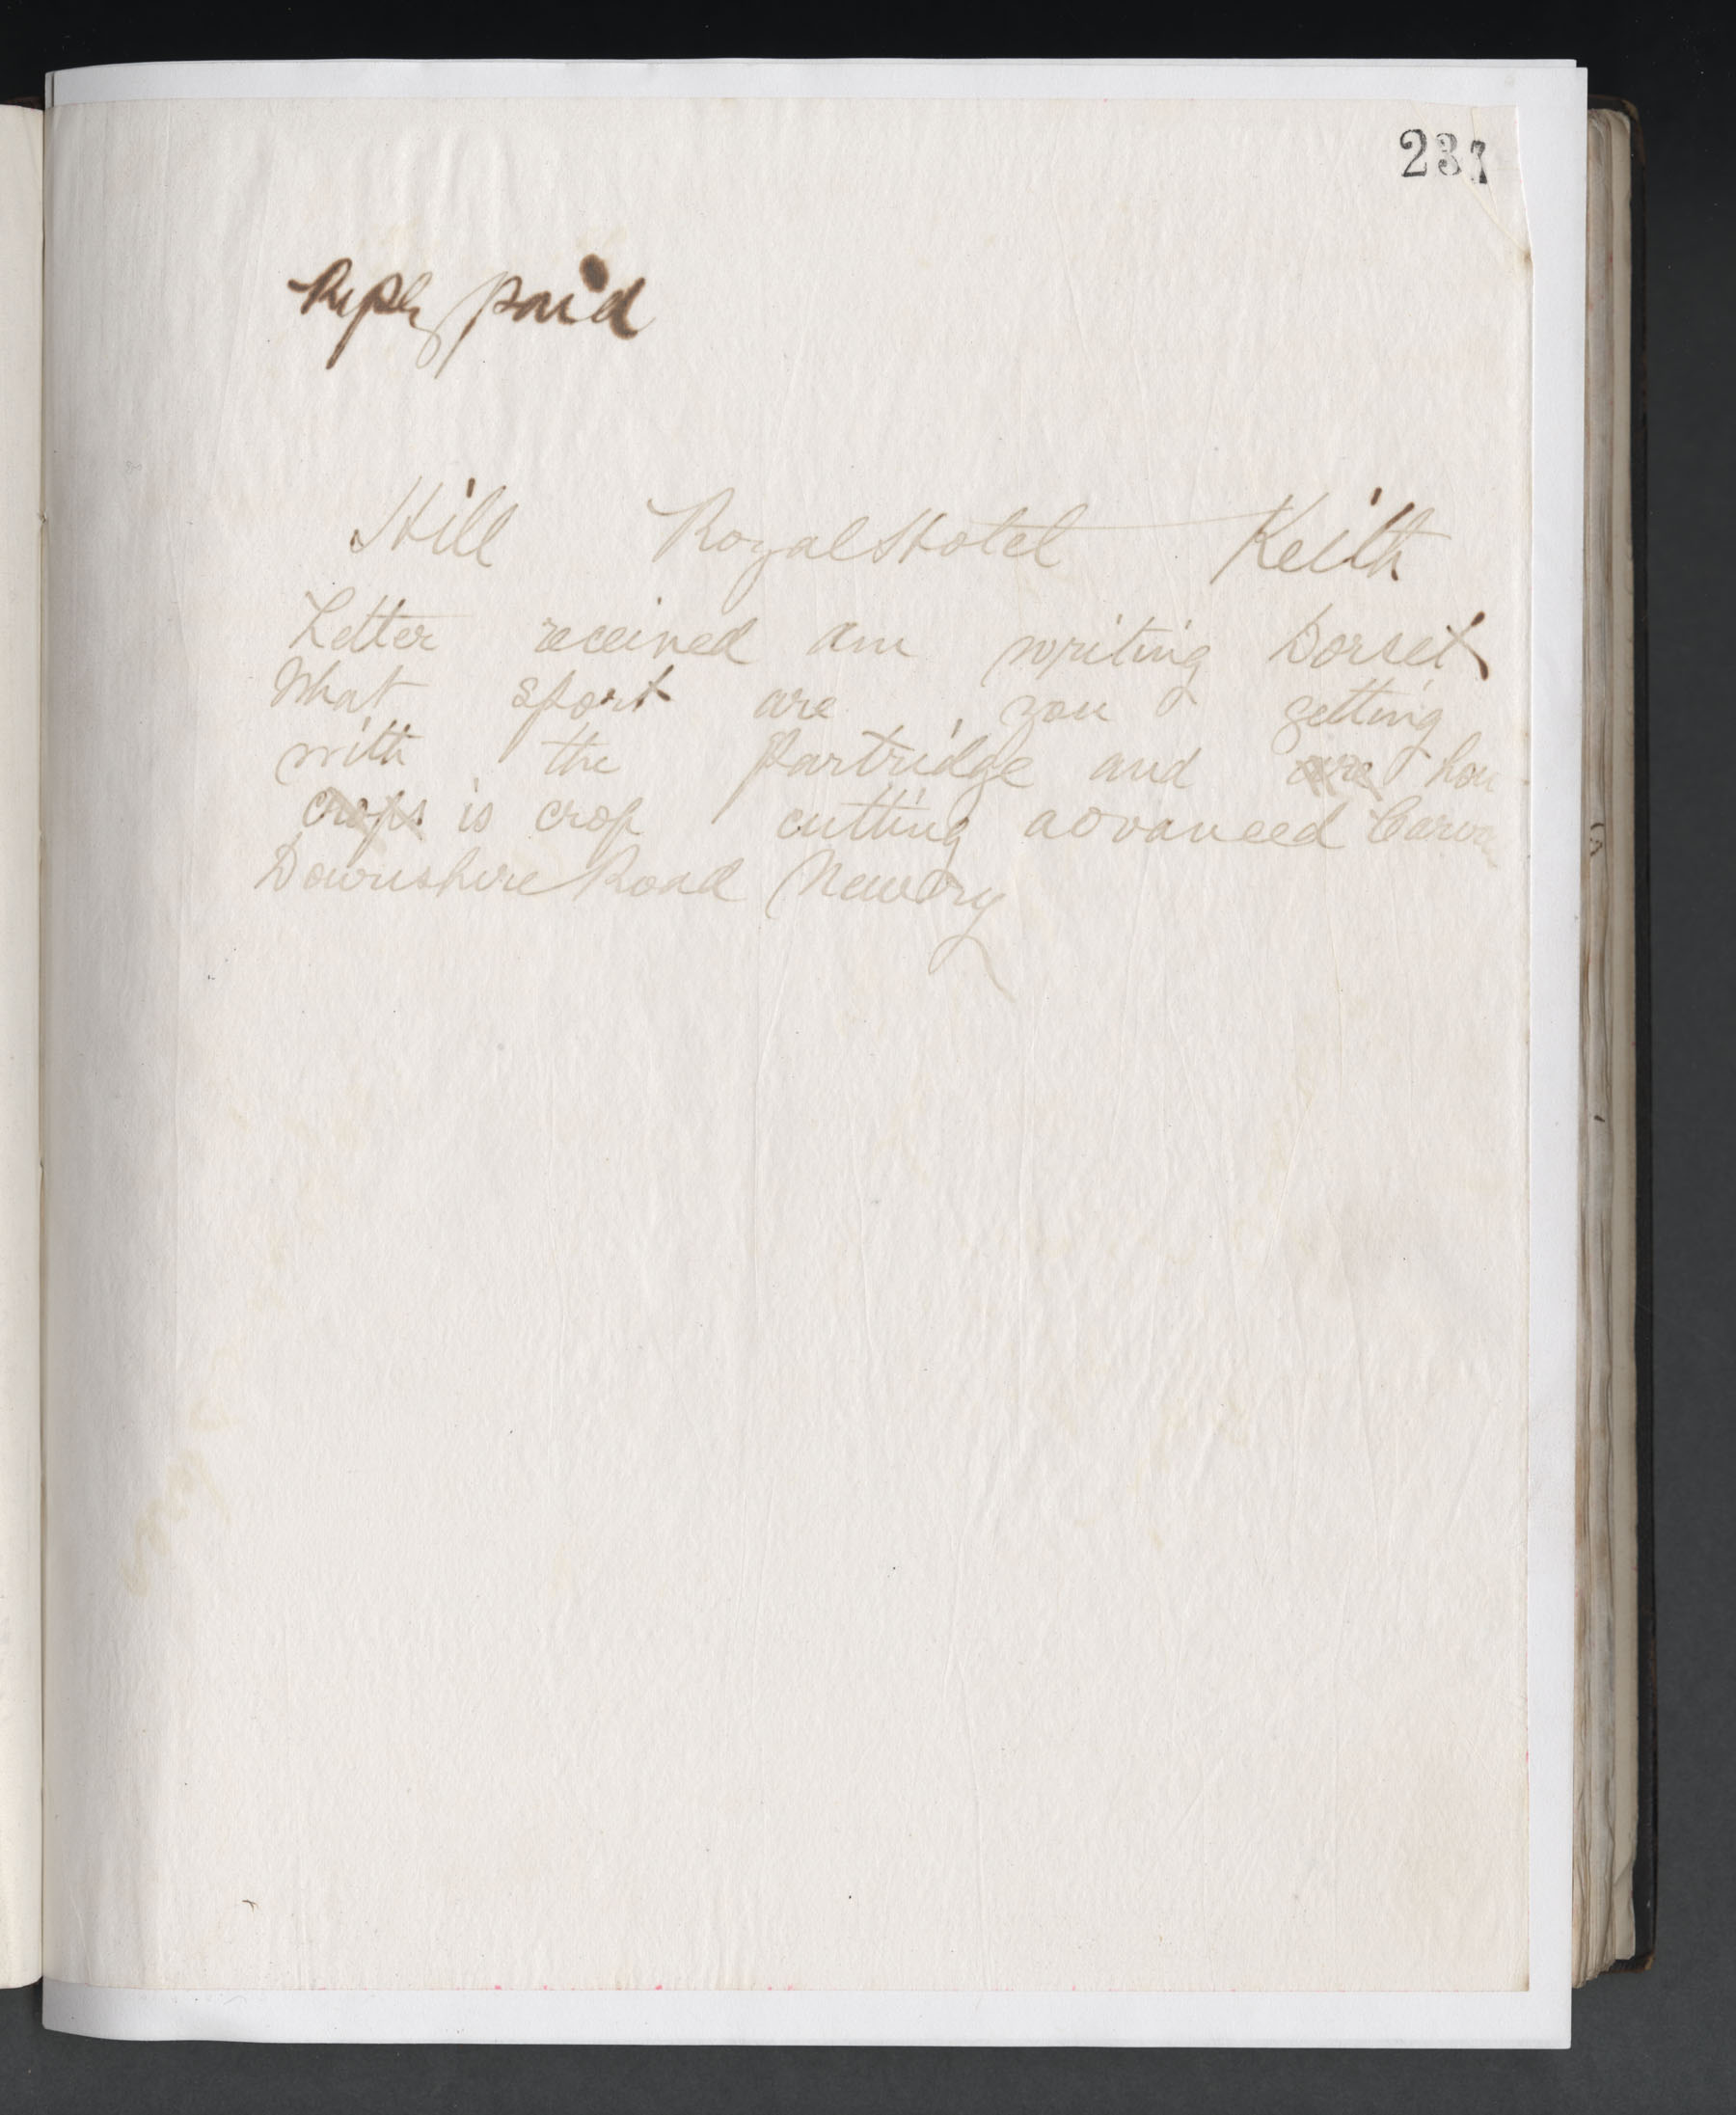 237
Reply paid
Hill Royal Hotel Keith
Letter received am writing Dorset
What sport are you getting
with the Partridge and are how
crops is crop cutting advanced
Downshire Road Newry